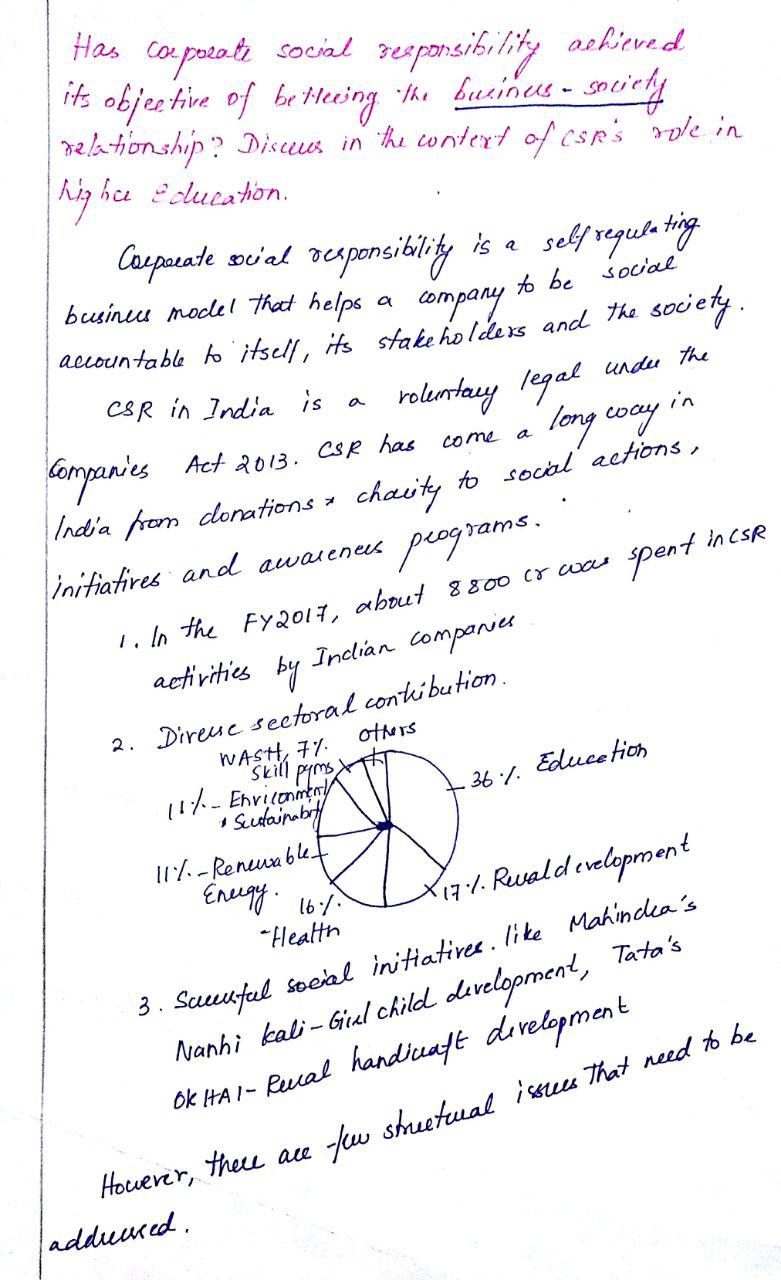 Has Corporate social responsibility achieved
its objective of bettering the business - society
relationship? Discuss in the context of CSR's role in
higher Education.
Corporate social responsibility is a self regulating
business model that helps a company to be social
accountable to itself, its stakeholders and the society.
CSR in India is a voluntary legal under the
Companies Act 2013. CSR has come a long way in
India from donations & charity to social actions,
initiatives and awareness programs.
1. In the FY2017, about 8800 cr was spent in CSR
activities by Indian companies
2. Diverse sectoral contribution.
others
WASH, 7%.
Skill pgms
36%. Education
11%- Environment
& Sustainability
11%.-Renewable
Energy.
17%. Rural development
16%.
-Health
3. Successful social initiatives. like Mahindra's
Nanhi kali - Girl child development, Tata's
OKHAI- Rural handicraft development
However, there are few structural issues that need to be
addressed.